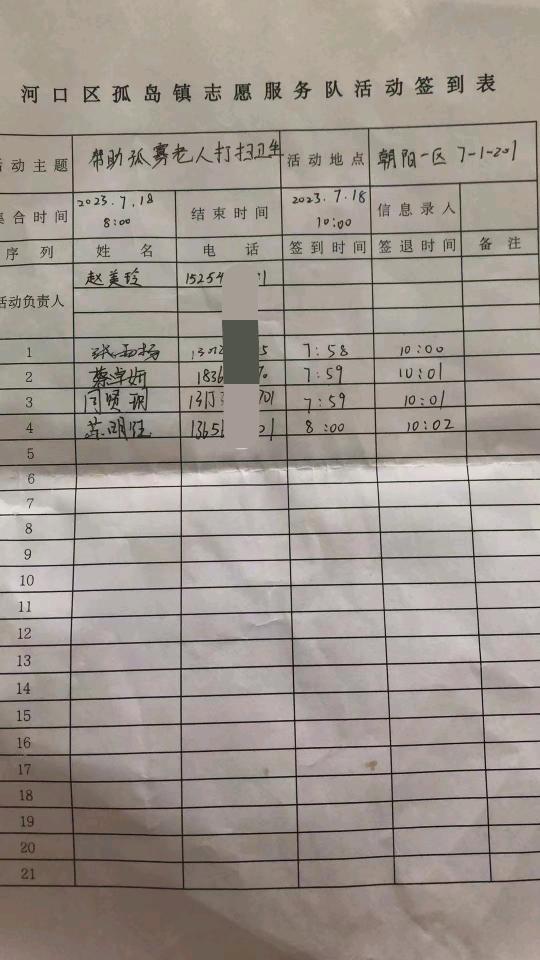 河口区孤岛镇志愿服务队活动签到表
活动主题 帮助孤寡老人打扫卫生 活动地点 朝阳一区 7-1-201
集合时间 2023.7.18 8:00 结束时间 2023.7.18 10:00 信息录人
序列 姓名 电话 签到时间 签退时间 备注
活动负责人 赵美玲 15254
1 7:58 10:00
2 蔡卓妍 1836 7:59 10:01
3 701 7:59 10:01
4 苏明 1365 01 8:00 10:02
5
6
7
8
9
10
11
12
13
14
15
16
17
18
19
20
21